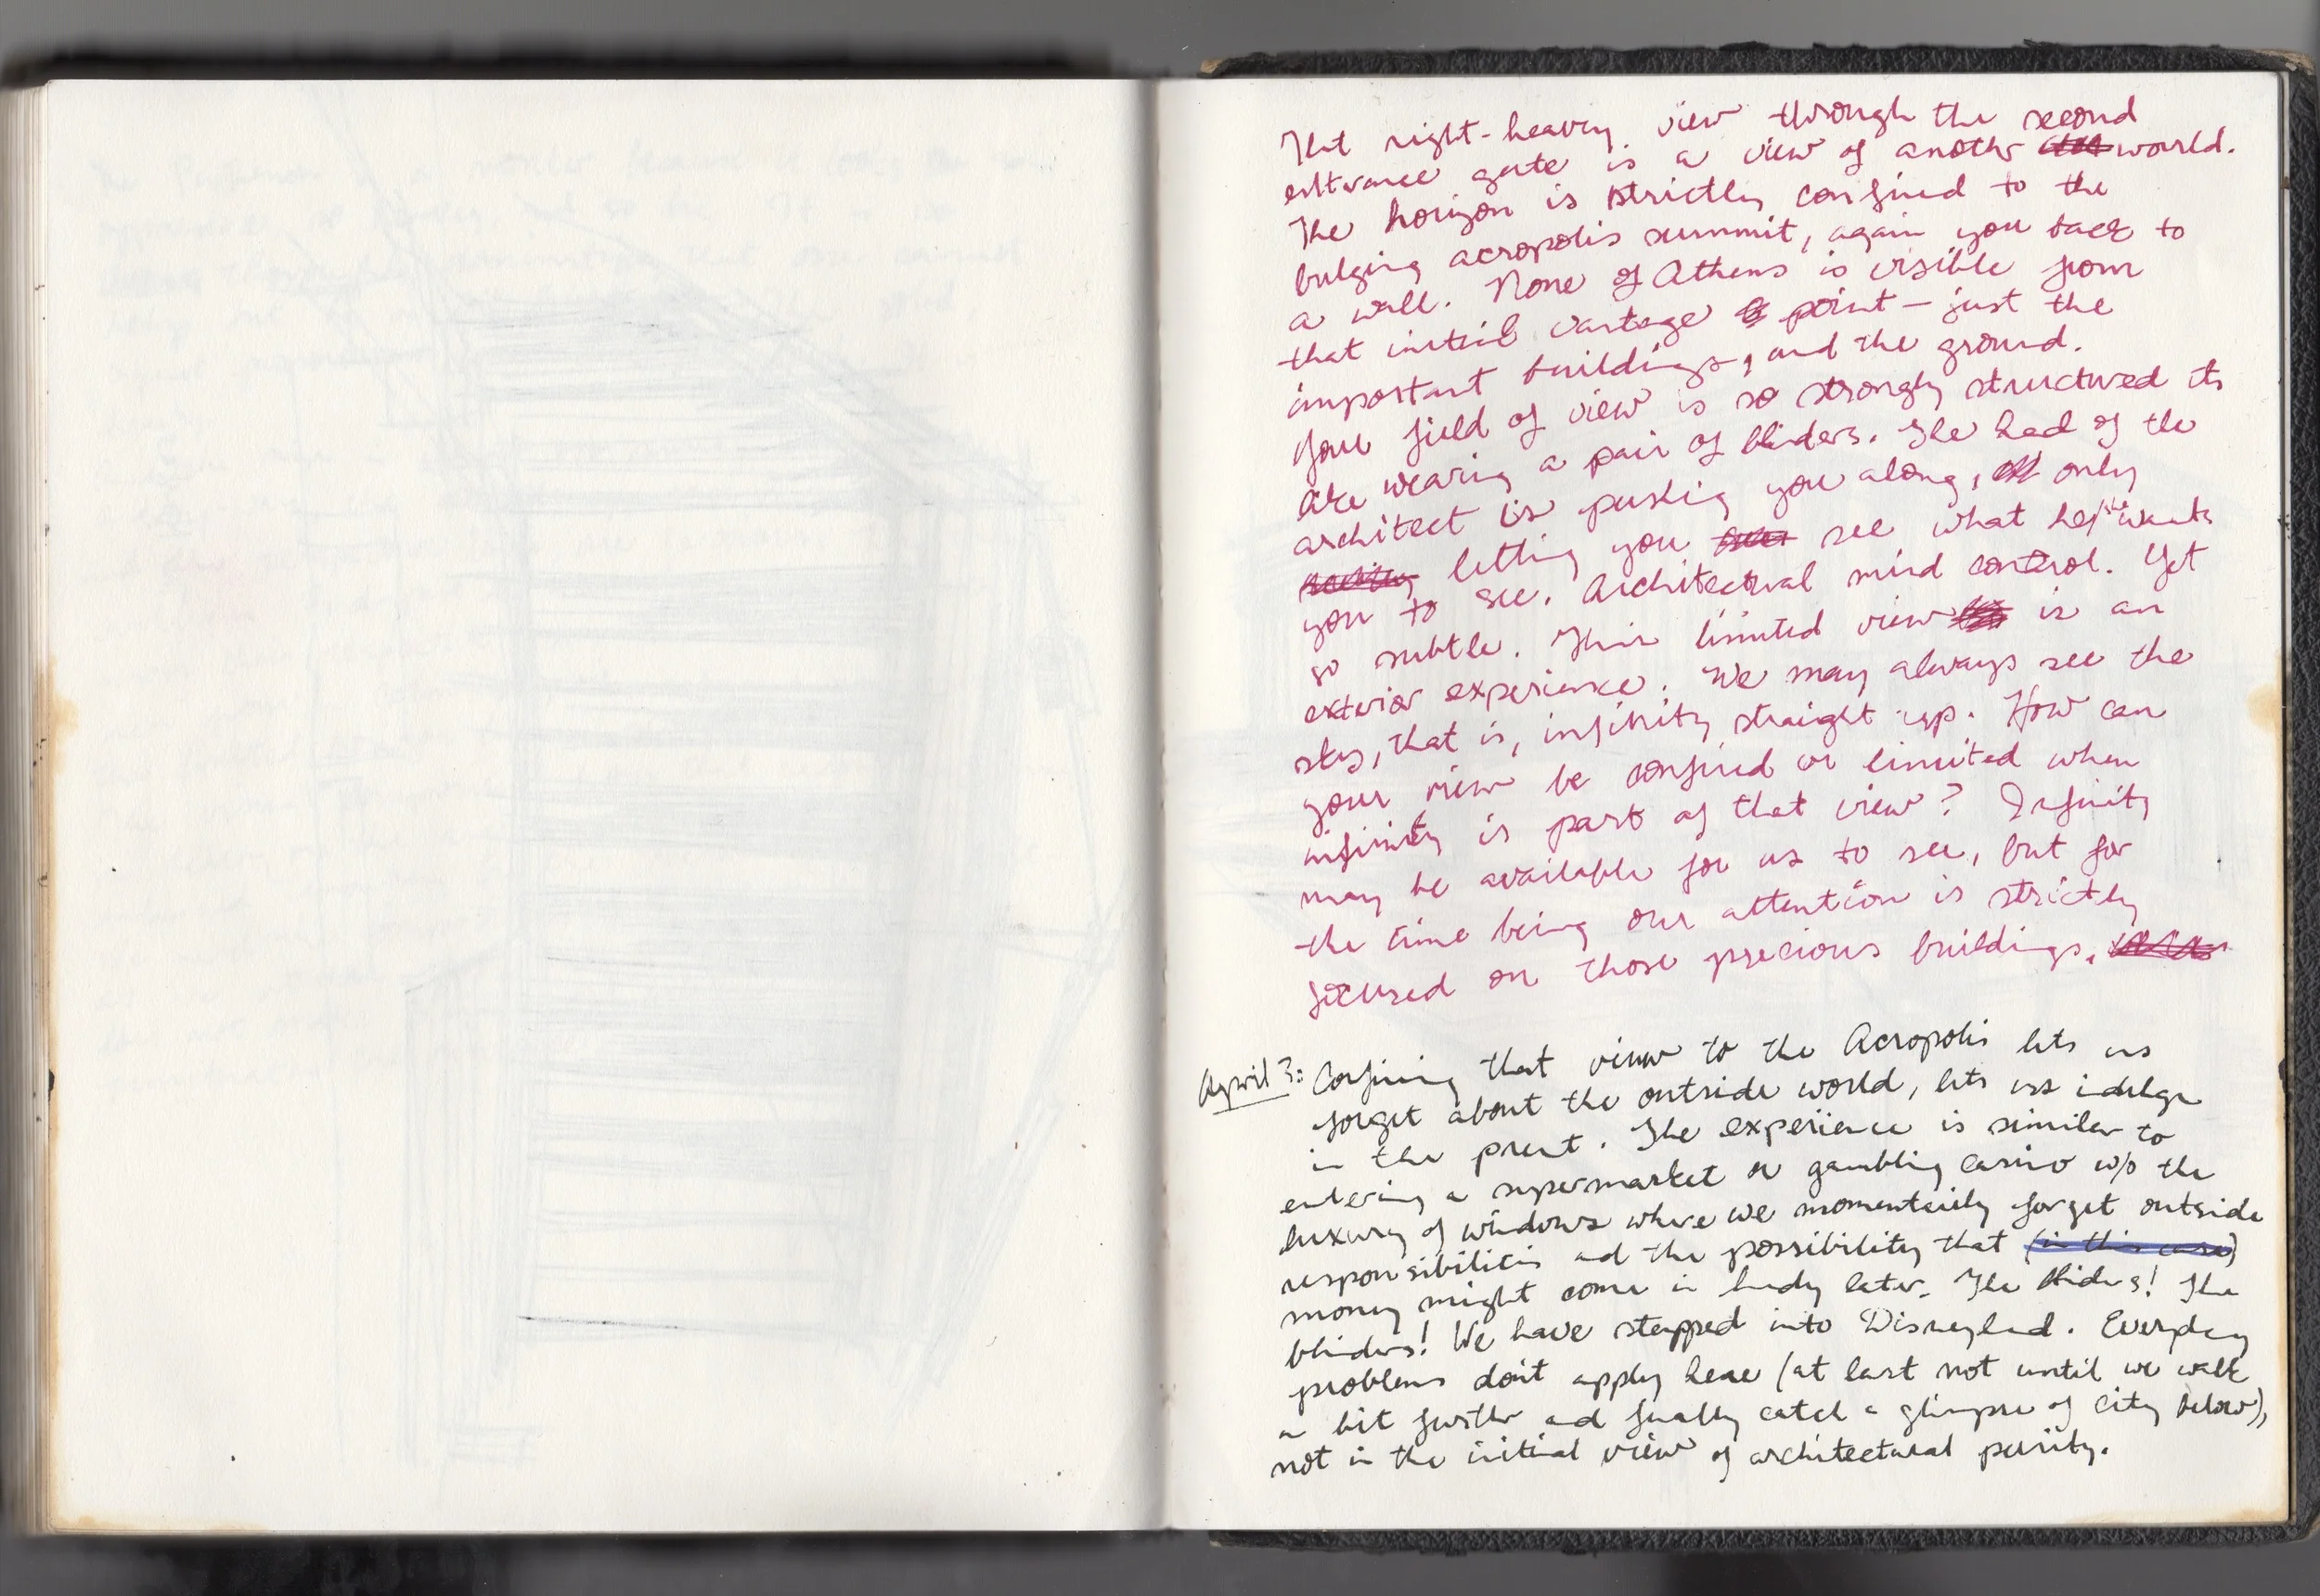 That right-heavy view through the second
entrance gate is a view of another world.
The horizon is strictly confined to the
bulging acropolis summit, again you back to
a wall. None of Athens is visible from
that initial vantage point — just the
important buildings, and the ground.
Your field of view is so strongly structured its
like wearing a pair of blinders. The hand of the
architect is pushing you along, only
letting you see what he/she wants
you to see. Architectural mind control. Yet
so subtle. This limited view is an
exterior experience. We may always see the
sky, that is, infinity straight up. How can
your view be confined or limited when
infinity is part of that view? Infinity
may be available for us to see, but for
the time being our attention is strictly
focused on those precious buildings.
April 3: Confining that view to the Acropolis lets us
forget about the outside world, lets us indulge
in the present. The experience is similar to
entering a supermarket or gambling casino w/o the
luxury of windows where we momentarily forget outside
responsibilities and the possibility that (in this case)
money might come in handy later. The blinders! The
blinders! We have stepped into Disneyland. Everyday
problems don't apply here (at least not until we walk
a bit further and finally catch a glimpse of city below),
not in the initial view of architectural purity.